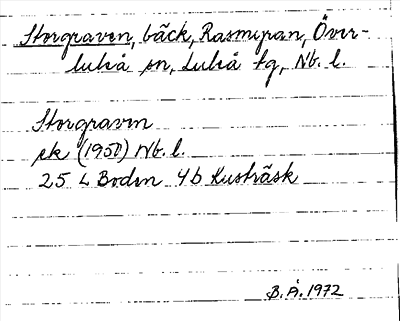 Storgraven, bäck, Rasmyran, Över-
luleå sn, Luleå tg, Nb. l.
Storgraven
ek (1950) Nb. l.
25 L Boden 4b Kusträsk
B. Å. 1972